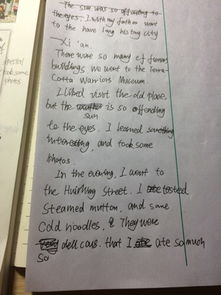 The sun was so offending to
the eyes, I with my father went
to the have long his tory city
—Xi 'an.
There were so many of famous
buildings we went to the Terra-
Cotta Warriors Museum.
I liked visit the old place,
but the sun is so offending
to the eyes. I learned something
interesting, and took some
photos.
In the evening, I went to
the Huiming Street. I tasted
steamed mutton, and some
cold noodles, & They were
dellcous. that I ate so much
so